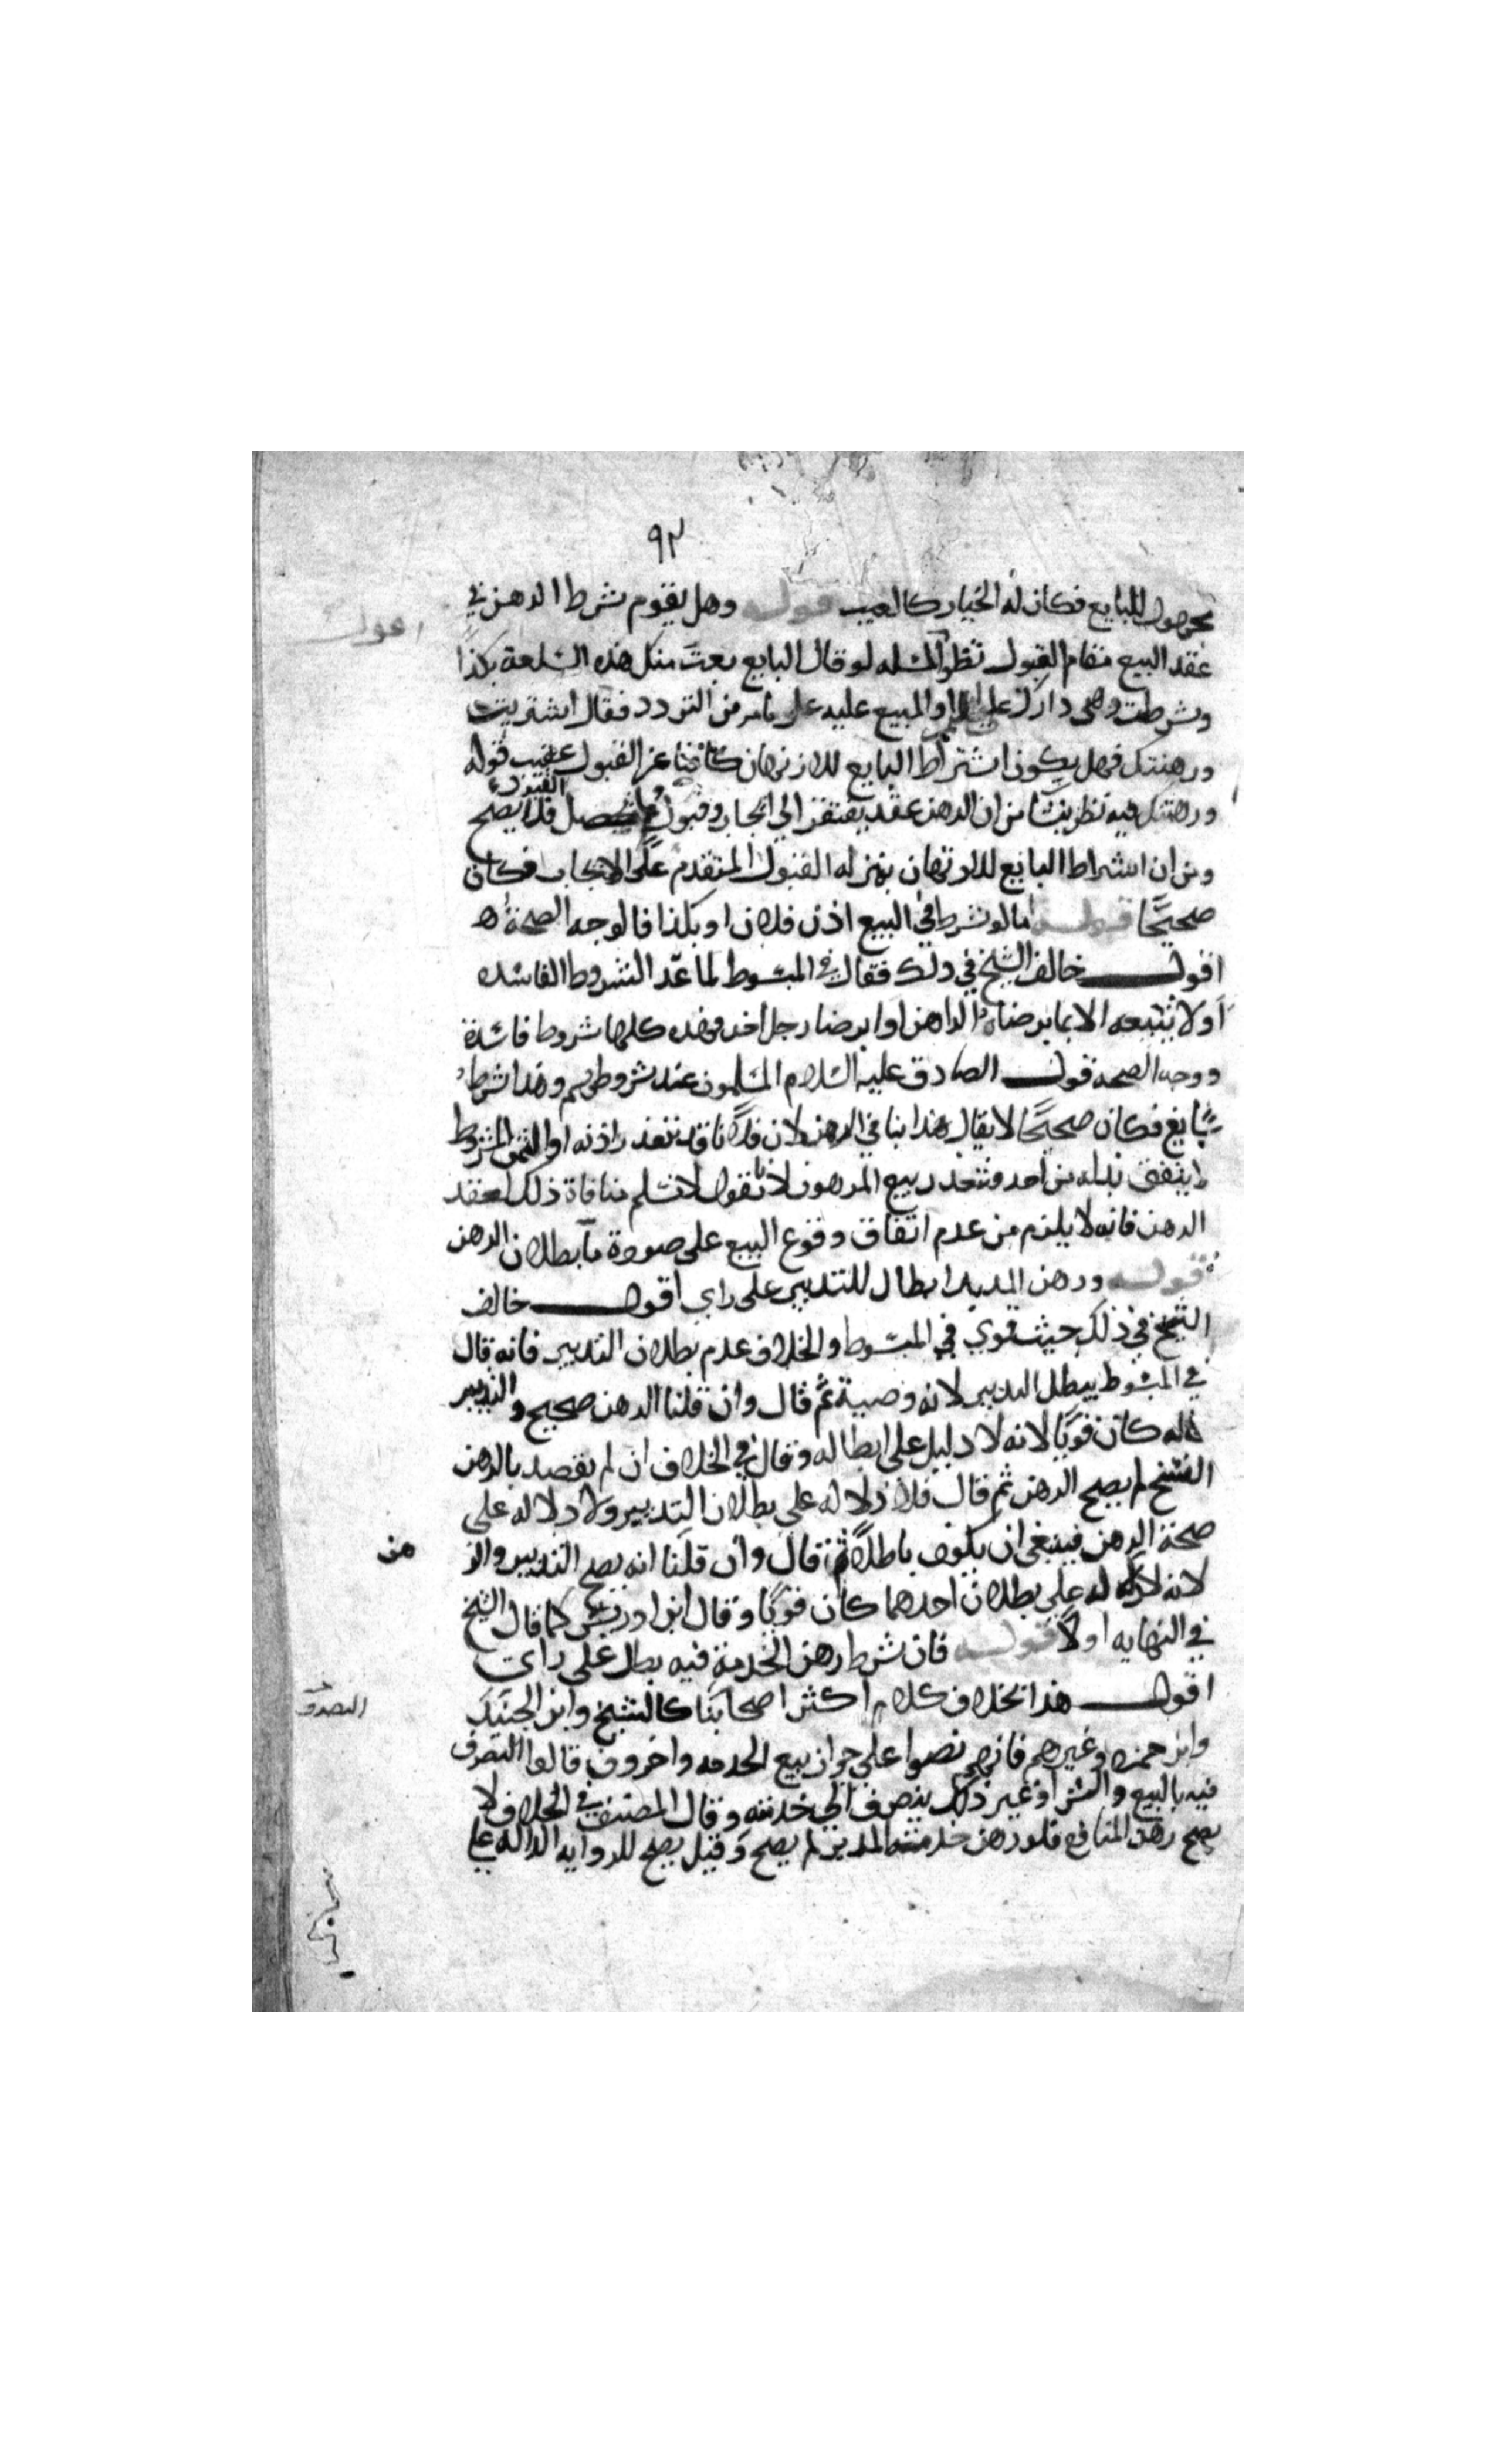 ٩٢
للبايع فكان له الخيار كالعيب قوله وهل يقوم شرط الرهن في
اقول
عقد البيع مقام القبول نظر المسله لو قال البايع بعت منك هذه السلعة بكذا
وشرطت رهن دارك على او المبيع عليه على ما مر من التردد فقال اشتريت
ورهنتك فهل يكون اشتراط البايع للارتهان كافيا عن القبول عقيب قوله
ورهنتك فيه نظر ينشا من ان الرهن عقد يفتقر الى ايجاب وقبول القبول فلا يصح
ومن ان اشتراط البايع للارتهان بمنزله القبول المتقدم على الايجاب فكان
صحيحا قوله اما لو شرط في البيع اذن فلان او بكذا فالوجه الصحة
اقول خالف الشيخ في ذلك فقال في المبسوط لما عد الشروط الفاسده
او لا يبيعه الا بما يرضاه الراهن او يرضا رجل اخر فهذه كلها شروط فاسدة
ووجه الصحه قول الصادق عليه السلام المسلمون عند شروطهم وهذا شرط
سايغ فكان صحيحا لا يقال هذا ينافي الرهن لان فلانا قد يتعذر اذنه او الثمن المشروط
لا يتفق بذله من احد فيتعذر بيع المرهون لانا نقول لا نسلم منافاة ذلك لعقد
الرهن فانه لا يلزم من عدم اتفاق وقوع البيع على صورة ما بطلان الرهن
قوله ورهن المدبر ابطال للتدبير على راي اقول خالف
الشيخ في ذلك حيث قوي في المبسوط والخلاف عدم بطلان التدبير فانه قال
في المبسوط يبطل التدبير لانه وصية ثم قال وان قلنا الرهن صحيح والتدبير
بحاله كان قويا لانه لا دليل على ابطاله وقال في الخلاف ان لم يقصد بالرهن
الفسخ لم يصح الرهن ثم قال فلا دلاله على بطلان التدبير ولا دلاله على
صحة الرهن فينبغي ان يكون باطلا ثم قال وان قلنا انه يصح التدبير والر
هن
لانه لا دلاله على بطلان احدهما كان قويا وقال ابن ادريس كما قال الشيخ
في النهايه اولا قوله فان شرط رهن الخدمة فيه بطل على راي
اقول هذا بخلاف كلام اكثر اصحابنا كالشيخ وابن الجنيد
التصرف
وابن حمزه وغيرهم فانهم نصوا على جواز بيع الخدمه واخرون قالوا التصرف
فيه بالبيع والشرا وغير ذلك ينصرف الى خدمته وقال المصنف في الخلاف لا
يصح رهن المنافع فلو رهن خدمة المدبر لم يصح وقيل يصح للروايه الداله على